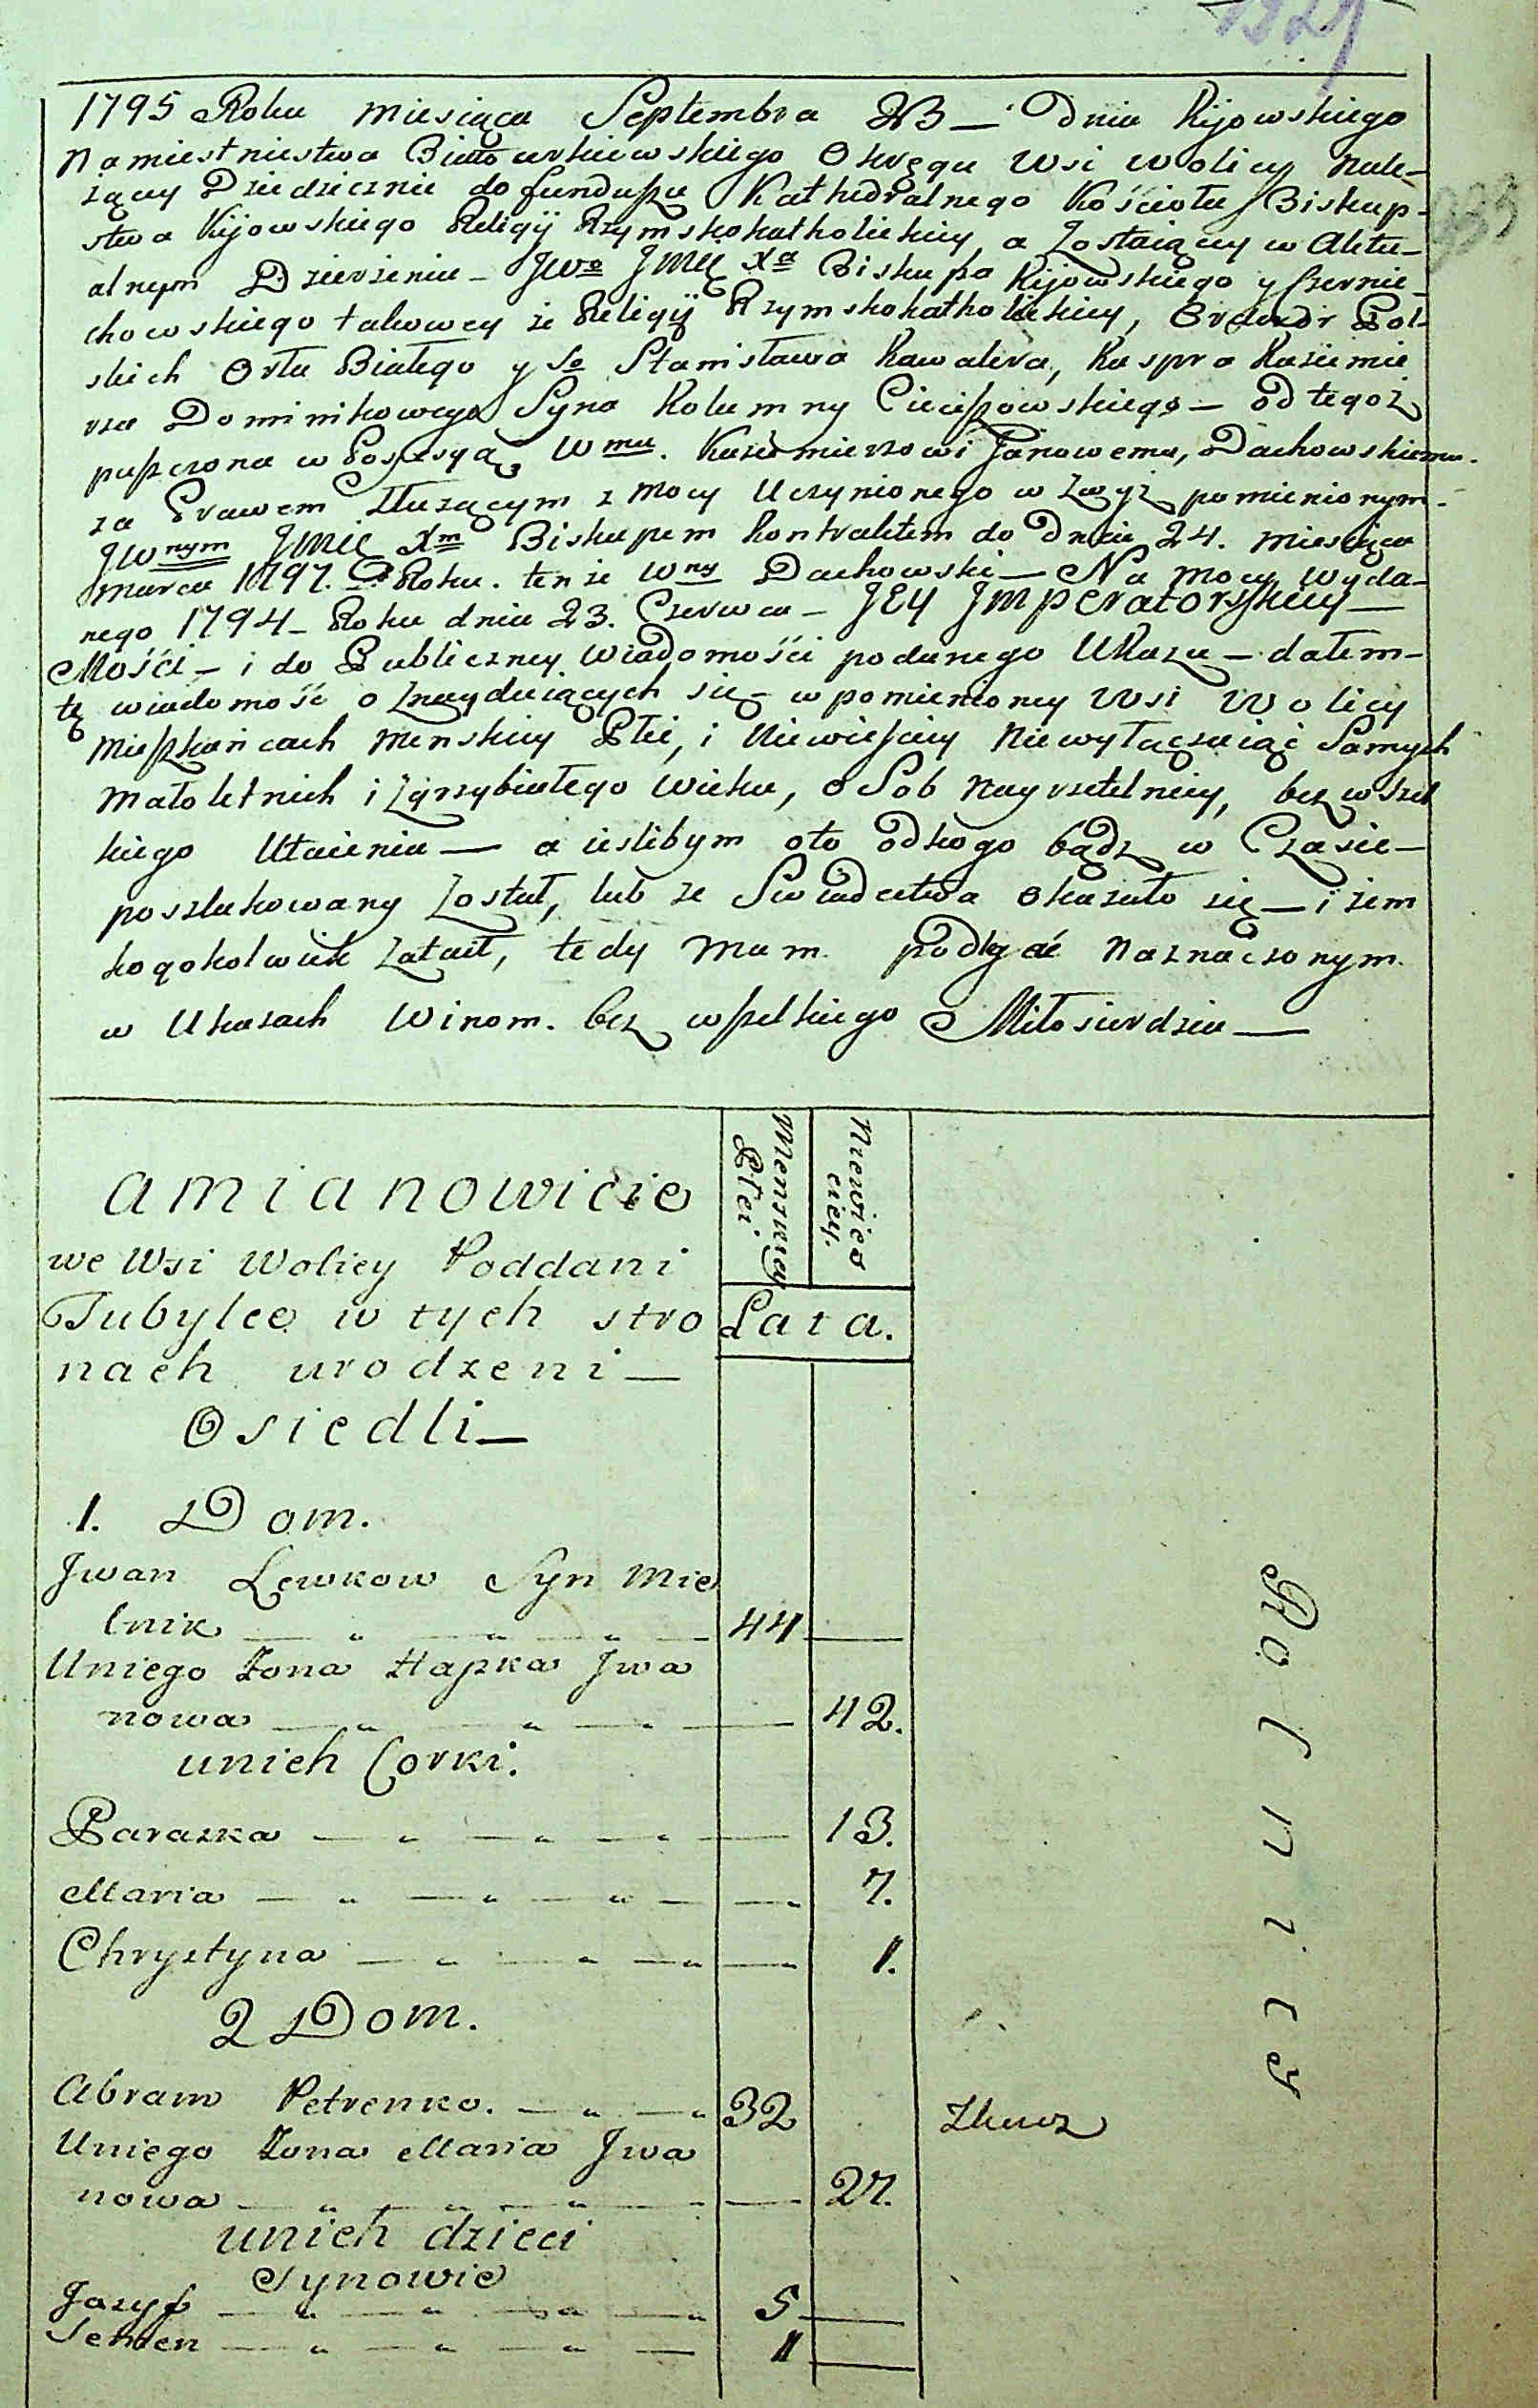 1795 Roku miesiąca Septembra 23 — Dnia Kijowskiego
Namiestnictwa Białocerkiewskiego Okręgu wsi Wolicy nale-
żący Dziedzicznie do funduszu Kathedralnego Kościoła Biskup-
stwa Kijowskiego Religij Rzymskokatholickiey, a zostaiący w Aktu-
alnym Dzierżeniu — JWo JMCi Xa Biskupa Kijowskiego y Czernie-
chowskiego takowey że Religij Rzymskokatholickiey, Orderów Pol-
skich Orła Białego y So Stanisława Kawalera, Kaspra Kazimie
rza Dominikowego Syna Kolumny Cieciszowskiego — od tegoż
puszczona w Possesyą, Wmu. Kazimierzowi Janowemu, Dachowskiemu.
za Prawem służącym z mocy Uczynionego w zwyż pomienionym-
JWnym JMCi Xm Biskupem kontraktem do Dnia 24. miesiąca
marca 1797. Roku. tenże Wny Dachowski — Na mocy wyda-
nego 1794 — Roku dnia 23. Czerwca — JEY IMperatorskiey —
Mości — i do Publiczney wiadomości podanego Ukazu — dałem —
tę wiadomość o znayduiących się — w pomienioney Wsi Wolicy
Mieszkańcach Menskiey Płci, i Niewieściey Niewyłączaiąc Samych
małoletnich i zgrzybiałego wieku, osob nayrzetelniey, bez wszel
kiego Utaienia — a ieslibym oto odkogo bądz w Czasie —
poszlakowany został, lub ze Swiadectwa okazało się — iżem
kogokolwiek zataił, tedy mam podledz Naznaczonym
w Ukazach Winom. bez wszelkiego Miłosierdzia —
amianowicie
we Wsi Wolicy Poddani
Tubylce w tych stro
nach urodzeni —
Osiedli —
Menskiey
Płci
Niewieś
ciey.
Lata.
1. Dom.
Jwan Lewkow Syn Mie
lnik 44
Uniego Zona Hapka Jwa
nowa 42.
unich Corki.
Paraska 13.
Maria 7.
Chrystyna 1.
2 Dom.
Abram Petrenko. 32
Tkacz
Uniego Zona Maria Jwa
nowa 27.
unich dzieci
Synowie
Jozyf 5
Semen 1
Rolnicy